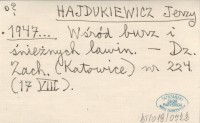 HAJDUKIEWICZ Jerzy
1947... Wśród burz i
śnieżnych lawin. — Dz.
Zach. (Katowice) nr 224
(17 VIII).